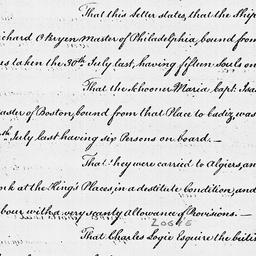 That this Letter states, that the Ship
ichard OBryen Master of Philadelphia, bound from
es taken the 30th July last, having fifteen Souls on
That the schooner Maria, Capt: Isaa
aster of Boston, bound from that Place to Cadiz, was
th July last having six Persons on board.—
That they were carried to Algiers, an
ork at the King's Places, in a destitute Condition, and
bour with a very scanty Allowance of Provisions.—
That Charles Logie Esquire the briti